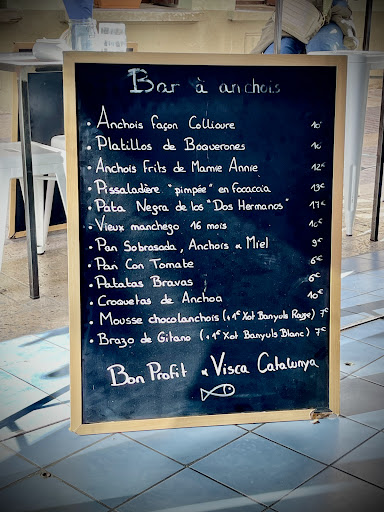 Bar à anchois
• Anchois façon Collioure 10€
• Platillos de Boquerones 10€
• Anchois Frits de Mamie Annie 12€
• Pissaladère "pimpée" en focaccia 13€
• Pata Negra de los "Dos Hermanos" 17€
• Vieux manchego 16 mois 10€
• Pan Sobrasada, Anchois & Miel 9€
• Pan Con Tomate 6€
• Patatas Bravas 6€
• Croquetas de Anchoa 10€
• Mousse chocolanchois (+1€ Xot Banyuls Rouge) 7€
• Brazo de Gitano (+1€ Xot Banyuls Blanc) 7€
Bon Profit & Visca Catalunya